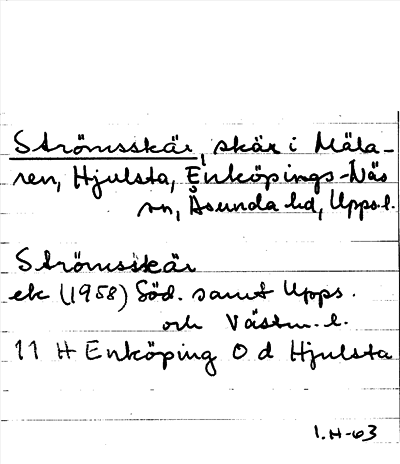 Strömsskär, skär i Mäla-
ren, Hjulsta, Enköpings-Näs
sn, Åsunda hd, Uppsl.
Strömsskär
ek (1958) Söd. samt Upps.
och Västm. l.
11 H Enköping O d Hjulsta
1.H-63